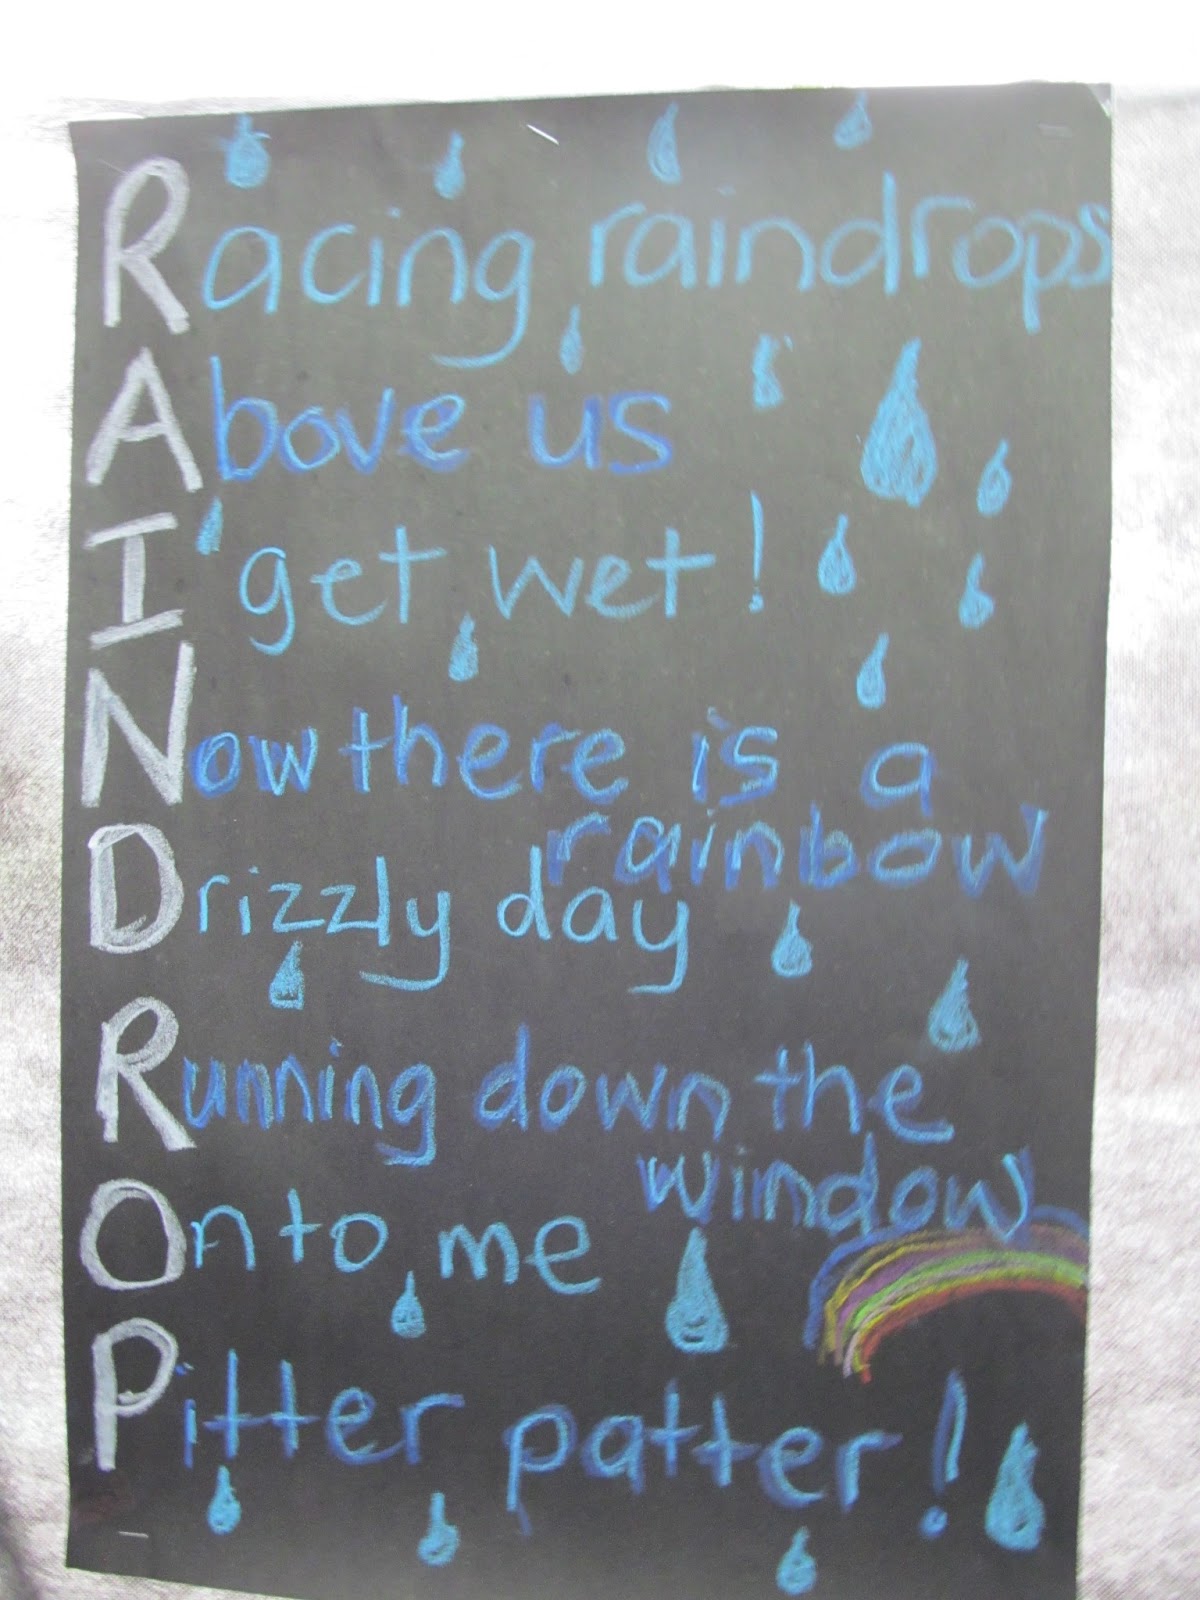 Racing raindrops
Above us
I get wet!
Now there is a
rainbow
Drizzly day
Running down the
window
Onto me
Pitter patter!